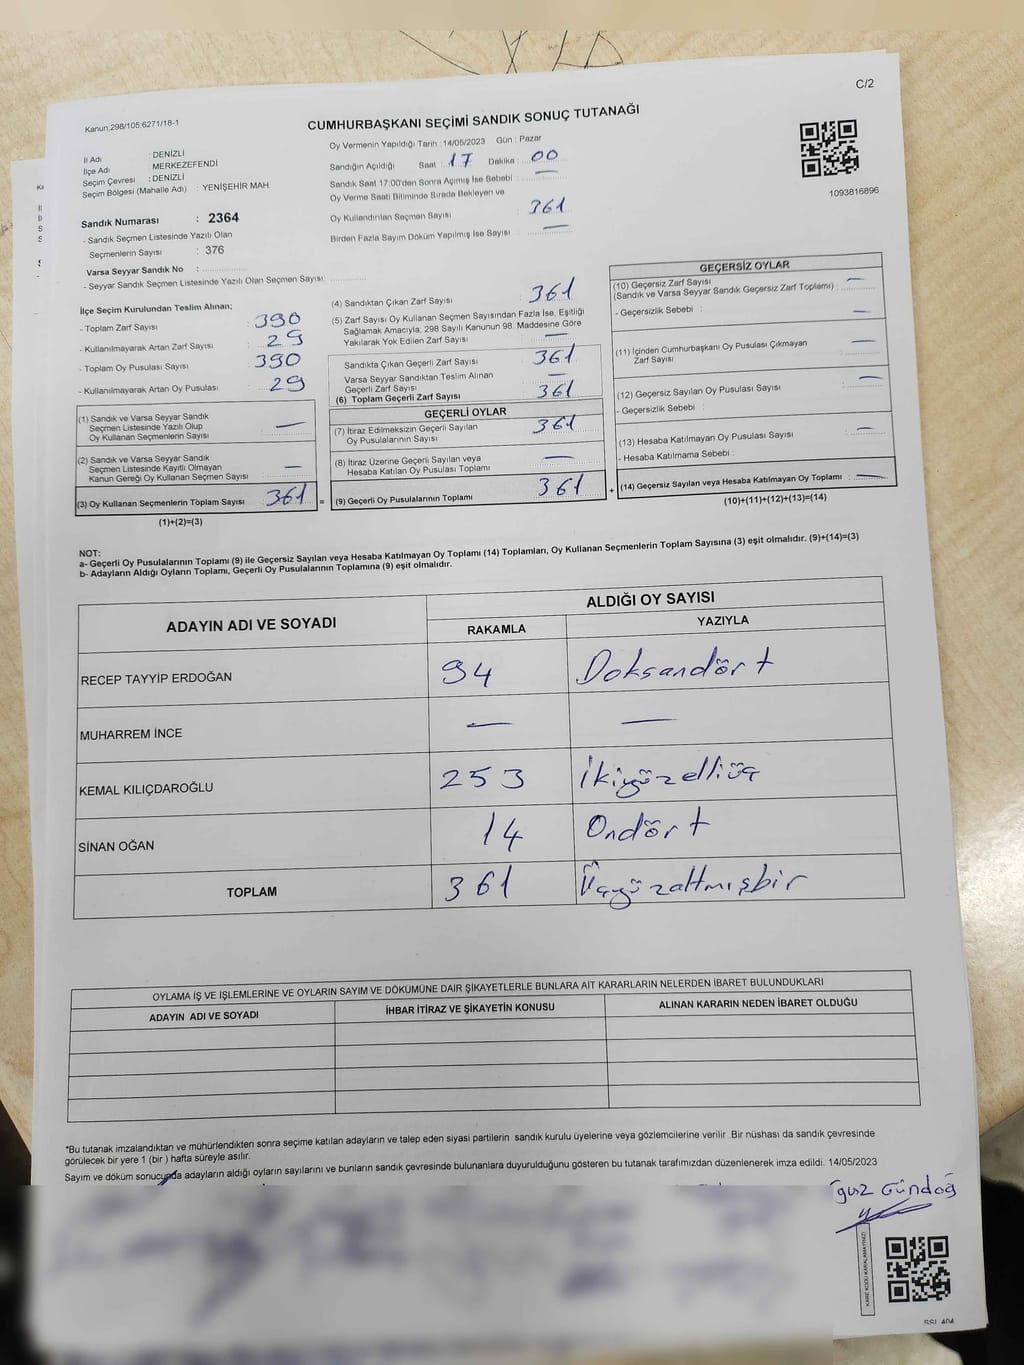 C/2
Kanun:298/105;6271/18-1
CUMHURBAŞKANI SEÇİMİ SANDIK SONUÇ TUTANAĞI
İl Adı : DENİZLİ
İlçe Adı : MERKEZEFENDİ
Seçim Çevresi : DENİZLİ
Seçim Bölgesi (Mahalle Adı) : YENİŞEHİR MAH.
Sandık Numarası : 2364
- Sandık Seçmen Listesinde Yazılı Olan
Seçmenlerin Sayısı : 376
Varsa Seyyar Sandık No :
- Seyyar Sandık Seçmen Listesinde Yazılı Olan Seçmen Sayısı:
Oy Vermenin Yapıldığı Tarih :14/05/2023 Gün : Pazar
Sandığın Açıldığı Saat : 17 Dakika : 00
Sandık Saat 17:00'den Sonra Açılmış İse Sebebi : —
Oy Verme Saati Bitiminde Sırada Bekleyen ve
Oy Kullandırılan Seçmen Sayısı : 361
Birden Fazla Sayım Döküm Yapılmış İse Sayısı : —
1093816896
İlçe Seçim Kurulundan Teslim Alınan;
- Toplam Zarf Sayısı : 390
- Kullanılmayarak Artan Zarf Sayısı : 29
- Toplam Oy Pusulası Sayısı : 390
- Kullanılmayarak Artan Oy Pusulası : 29
(1) Sandık ve Varsa Seyyar Sandık
Seçmen Listesinde Yazılı Olup
Oy Kullanan Seçmenlerin Sayısı —
(2) Sandık ve Varsa Seyyar Sandık
Seçmen Listesinde Kayıtlı Olmayan
Kanun Gereği Oy Kullanan Seçmen Sayısı —
(3) Oy Kullanan Seçmenlerin Toplam Sayısı 361 =
(1)+(2)=(3)
(4) Sandıktan Çıkan Zarf Sayısı : 361
(5) Zarf Sayısı Oy Kullanan Seçmen Sayısından Fazla İse, Eşitliği
Sağlamak Amacıyla, 298 Sayılı Kanunun 98. Maddesine Göre
Yakılarak Yok Edilen Zarf Sayısı : —
Sandıkta Çıkan Geçerli Zarf Sayısı : 361
Varsa Seyyar Sandıktan Teslim Alınan
Geçerli Zarf Sayısı : —
(6) Toplam Geçerli Zarf Sayısı : 361
GEÇERLİ OYLAR
(7) İtiraz Edilmeksizin Geçerli Sayılan
Oy Pusulalarının Sayısı : 361
(8) İtiraz Üzerine Geçerli Sayılan veya
Hesaba Katılan Oy Pusulası Toplamı : —
(9) Geçerli Oy Pusulalarının Toplamı 361 +
GEÇERSİZ OYLAR
(10) Geçersiz Zarf Sayısı
(Sandık ve Varsa Seyyar Sandık Geçersiz Zarf Toplamı) : —
- Geçersizlik Sebebi : —
(11) İçinden Cumhurbaşkanı Oy Pusulası Çıkmayan
Zarf Sayısı : —
(12) Geçersiz Sayılan Oy Pusulası Sayısı : —
- Geçersizlik Sebebi :
(13) Hesaba Katılmayan Oy Pusulası Sayısı : —
- Hesaba Katılmama Sebebi :
(14) Geçersiz Sayılan veya Hesaba Katılmayan Oy Toplamı : —
(10)+(11)+(12)+(13)=(14)
NOT:
a- Geçerli Oy Pusulalarının Toplamı (9) ile Geçersiz Sayılan veya Hesaba Katılmayan Oy Toplamı (14) Toplamları, Oy Kullanan Seçmenlerin Toplam Sayısına (3) eşit olmalıdır. (9)+(14)=(3)
b- Adayların Aldığı Oyların Toplamı, Geçerli Oy Pusulalarının Toplamına (9) eşit olmalıdır.
ADAYIN ADI VE SOYADI ALDIĞI OY SAYISI
RAKAMLA YAZIYLA
RECEP TAYYİP ERDOĞAN 94 Doksandört
MUHARREM İNCE — —
KEMAL KILIÇDAROĞLU 253 İkiyüzelliüç
SİNAN OĞAN 14 Ondört
TOPLAM 361 Üçyüzaltmışbir
OYLAMA İŞ VE İŞLEMLERİNE VE OYLARIN SAYIM VE DÖKÜMÜNE DAİR ŞİKAYETLERLE BUNLARA AİT KARARLARIN NELERDEN İBARET BULUNDUKLARI
ADAYIN ADI VE SOYADI İHBAR İTİRAZ VE ŞİKAYETİN KONUSU ALINAN KARARIN NEDEN İBARET OLDUĞU
*Bu tutanak imzalandıktan ve mühürlendikten sonra seçime katılan adayların ve talep eden siyasi partilerin sandık kurulu üyelerine veya gözlemcilerine verilir .Bir nüshası da sandık çevresinde
görülecek bir yere 1 (bir ) hafta süreyle asılır.
Sayım ve döküm sonucunda adayların aldığı oyların sayılarını ve bunların sandık çevresinde bulunanlara duyurulduğunu gösteren bu tutanak tarafımızdan düzenlenerek imza edildi. 14/05/2023
ğuz Gündoğ
KARE KODU KARALAMAYINIZ!